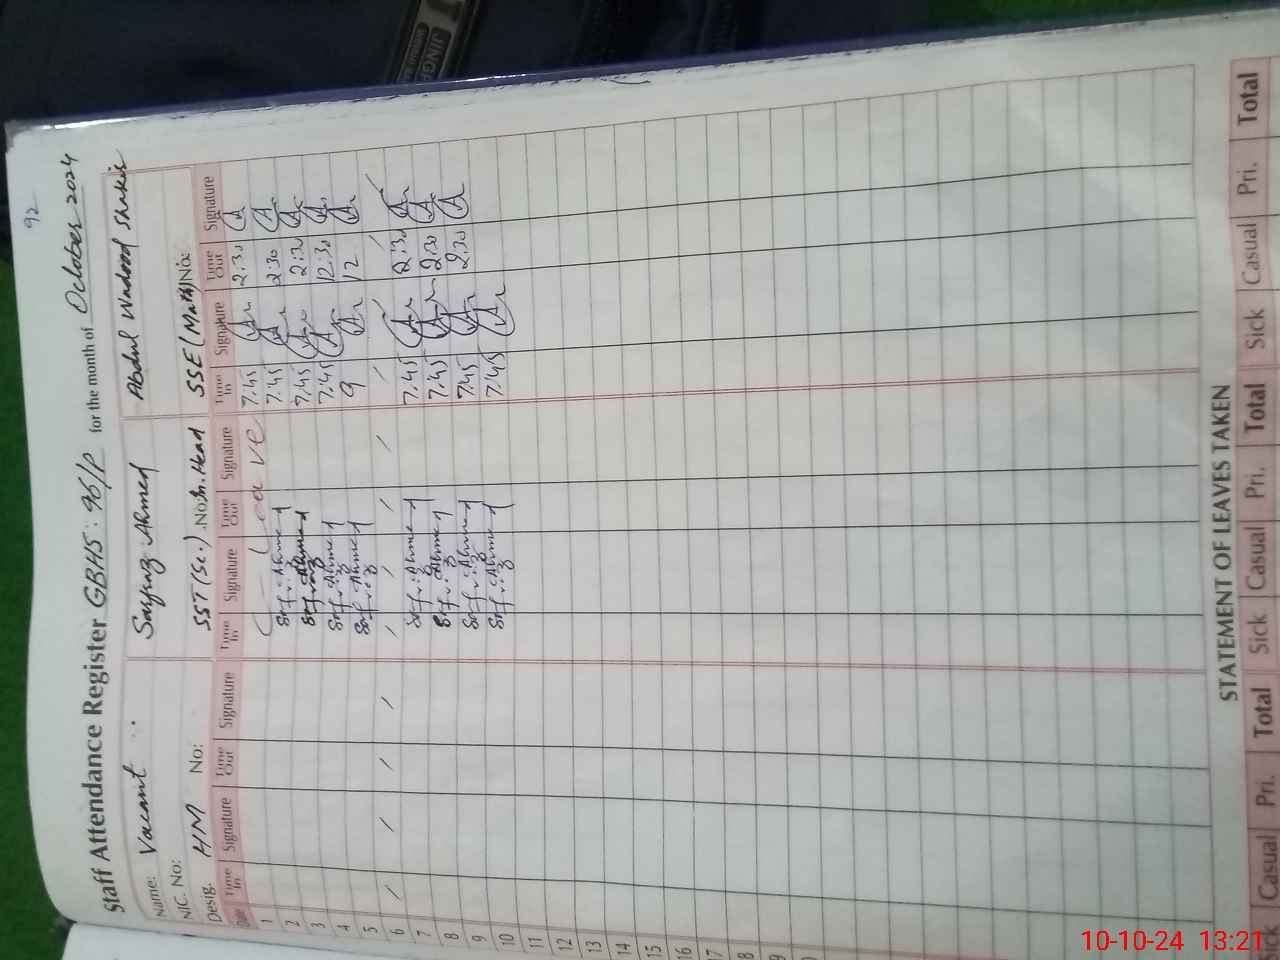 92
Staff Attendance Register GBHS: 96/P for the month of October 2024
Name: Vacant Sarfraz Ahmed Abdul Wadood Shakir
N.I.C. No:
Desig. HM No: SST (Sc.) No: In. Head SSE (Math) No:
Date Time In Signature Time Out Signature Time In Signature Time Out Signature Time In Signature Time Out Signature
1 Leave 7.45 2.30
2 Sarfraz Ahmed 7.45 2.30
3 Sarfraz Ahmed 7.45 2:30
4 Sarfraz Ahmed 7.45 12.30
5 Sarfraz Ahmed 9 12
6
7 Sarfraz Ahmed 7.45 2:30
8 Sarfraz Ahmed 7.45 2:30
9 Sarfraz Ahmed 7.45 2.30
10 Sarfraz Ahmed 7.45
11
12
13
14
15
16
17
8
9
STATEMENT OF LEAVES TAKEN
Sick Casual Pri. Total Sick Casual Pri. Total Sick Casual Pri. Total
10-10-24 13:21